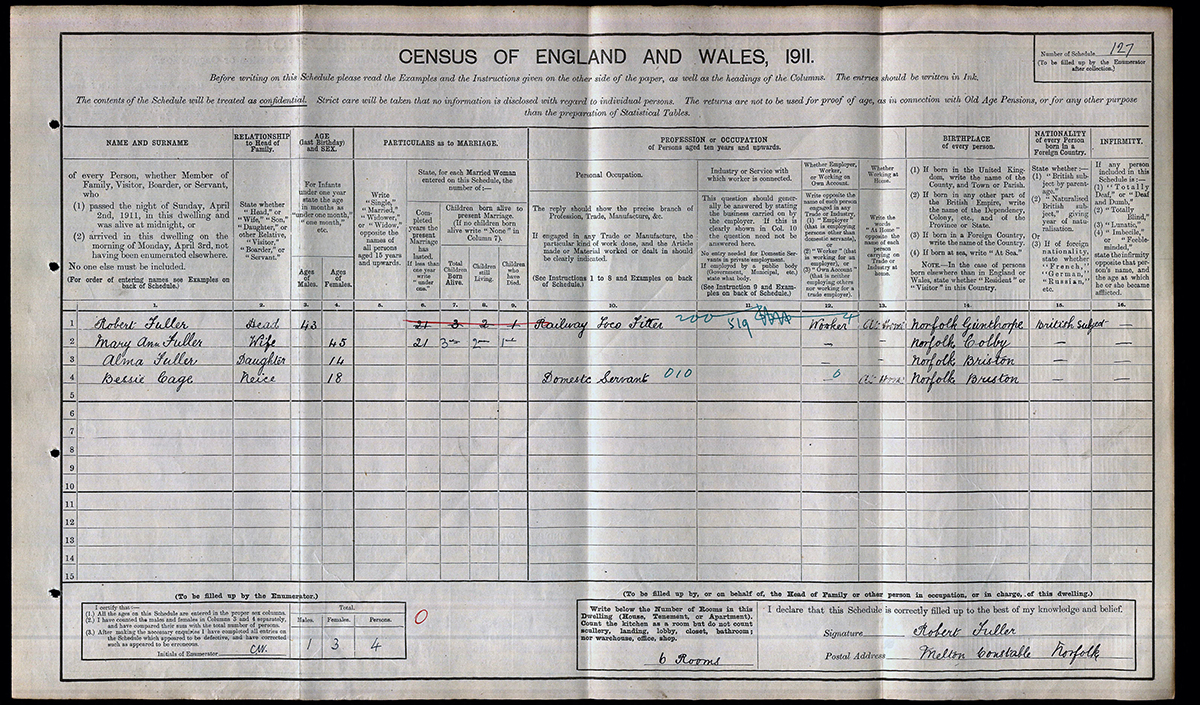 CENSUS OF ENGLAND AND WALES, 1911.
Number of Schedule 127
(To be filled up by the Enumerator after collection.)
Before writing on this Schedule please read the Examples and the Instructions given on the other side of the paper, as well as the headings of the Columns. The entries should be written in Ink.
The contents of the Schedule will be treated as confidential. Strict care will be taken that no information is disclosed with regard to individual persons. The returns are not to be used for proof of age, as in connection with Old Age Pensions, or for any other purpose
than the preparation of Statistical Tables.
NAME AND SURNAME
of every Person, whether Member of
Family, Visitor, Boarder, or Servant,
who
(1) passed the night of Sunday, April
2nd, 1911, in this dwelling and
was alive at midnight, or
(2) arrived in this dwelling on the
morning of Monday, April 3rd, not
having been enumerated elsewhere.
No one else must be included.
(For order of entering names see Examples on
back of Schedule.)
RELATIONSHIP
to Head of
Family.
State whether
"Head," or
"Wife," "Son,"
"Daughter," or
other Relative,
"Visitor,"
"Boarder," or
"Servant."
AGE
(last Birthday)
and SEX.
For Infants
under one year
state the age
in months as
"under one month,"
"one month,"
etc.
Ages
of
Males.
Ages
of
Females.
PARTICULARS as to MARRIAGE.
Write
"Single,"
"Married,"
"Widower,"
or "Widow,"
opposite the
names of
all persons
aged 15 years
and upwards.
State, for each Married Woman
entered on this Schedule, the
number of:—
Completed
years the
present
Marriage
has
lasted.
If less than
one year
write
"under
one."
Children born alive to
present Marriage.
(If no children born
alive write "None" in
Column 7).
Total
Children
Born
Alive.
Children
still
Living.
Children
who
have
Died.
PROFESSION or OCCUPATION
of Persons aged ten years and upwards.
Personal Occupation.
The reply should show the precise branch of
Profession, Trade, Manufacture, &c.
If engaged in any Trade or Manufacture, the
particular kind of work done, and the Article
made or Material worked or dealt in should
be clearly indicated.
(See Instructions 1 to 8 and Examples on back
of Schedule.)
Industry or Service with
which worker is connected.
This question should generally
be answered by stating
the business carried on
by the employer. If this is
clearly shown in Col. 10
the question need not be
answered here.
No entry needed for Domestic Servants
in private employment.
If employed by a public body
(Government, Municipal, etc.)
state what body.
(See Instruction 9 and Examples
on back of Schedule.)
Whether Employer,
Worker,
or Working on
Own Account.
Write opposite the
name of each person
engaged in any
Trade or Industry,
(1) "Employer"
(that is employing
persons other than
domestic servants),
or
(2) "Worker" (that
is working for an
employer), or
(3) "Own Account"
(that is neither
employing others
nor working for a
trade employer).
Whether
Working at
Home.
Write the
words
"At Home"
opposite the
name of each
person
carrying on
Trade or
Industry at
home.
BIRTHPLACE
of every person.
(1) If born in the United Kingdom,
write the name of the
County, and Town or Parish.
(2) If born in any other part of
the British Empire, write
the name of the Dependency,
Colony, etc., and of the
Province or State.
(3) If born in a Foreign Country,
write the name of the Country.
(4) If born at sea, write "At Sea."
NOTE.—In the case of persons
born elsewhere than in England or
Wales, state whether "Resident" or
"Visitor" in this Country.
NATIONALITY
of every Person
born in a
Foreign Country.
State whether:—
(1) "British subject
by parentage."
(2) "Naturalised
British subject,"
giving
year of naturalisation.
Or
(3) If of foreign
nationality,
state whether
"French,"
"German,"
"Russian,"
etc.
INFIRMITY.
If any person
included in this
Schedule is:—
(1) "Totally
Deaf," or "Deaf
and Dumb,"
(2) "Totally
Blind,"
(3) "Lunatic,"
(4) "Imbecile,"
or "Feeble-minded,"
state the infirmity
opposite that person's
name, and
the age at which
he or she became
afflicted.
1. 2. 3. 4. 5. 6. 7. 8. 9. 10. 11. 12. 13. 14. 15. 16.
1 Robert Fuller Head 43 21 3 2 1 Railway Loco Fitter 200 519 Worker 4 At Home Norfolk Gunthorpe British Subject —
2 Mary Ann Fuller Wife 45 21 3 2 1 — — Norfolk Colby — —
3 Alma Fuller Daughter 14 — Norfolk Briston — —
4 Bessie Cage Neice 18 Domestc Servant 010 — 0 At Home Norfolk Briston — —
5
6
7
8
9
10
11
12
13
14
15
(To be filled up by the Enumerator.)
I certify that:—
(1.) All the ages on this Schedule are entered in the proper sex columns.
(2.) I have counted the males and females in Columns 3 and 4 separately,
and have compared their sum with the total number of persons.
(3.) After making the necessary enquiries I have completed all entries on
the Schedule which appeared to be defective, and have corrected
such as appeared to be erroneous.
Initials of Enumerator CW.
Total.
Males. Females. Persons.
1 3 4
0
(To be filled up by, or on behalf of, the Head of Family or other person in occupation, or in charge, of this dwelling.)
Write below the Number of Rooms in this
Dwelling (House, Tenement, or Apartment).
Count the kitchen as a room but do not count
scullery, landing, lobby, closet, bathroom;
nor warehouse, office, shop.
6 Rooms
I declare that this Schedule is correctly filled up to the best of my knowledge and belief.
Signature Robert Fuller
Postal Address Melton Constable Norfolk